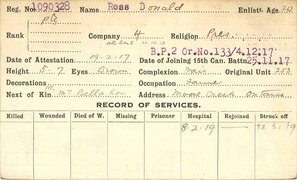 Reg. No. 1090328 Name Ross Donald Enlistt. Age 20
Rank Pte Company 4 Religion Pres.
B.P.2 Or.No.133/4.12.17
Date of Attestation 19-2-17 Date of Joining 18th Can. Battn. 25.11.17
Height 5.7 Eyes Brown Complexion Fair Original Unit 253
Decorations Occupation Farmer
Next of Kin Bella Ross Address Moose Creek Ontario
RECORD OF SERVICES.
Killed Wounded Died of W. Missing Prisoner Hospital Rejoined Struck off
8-2-19